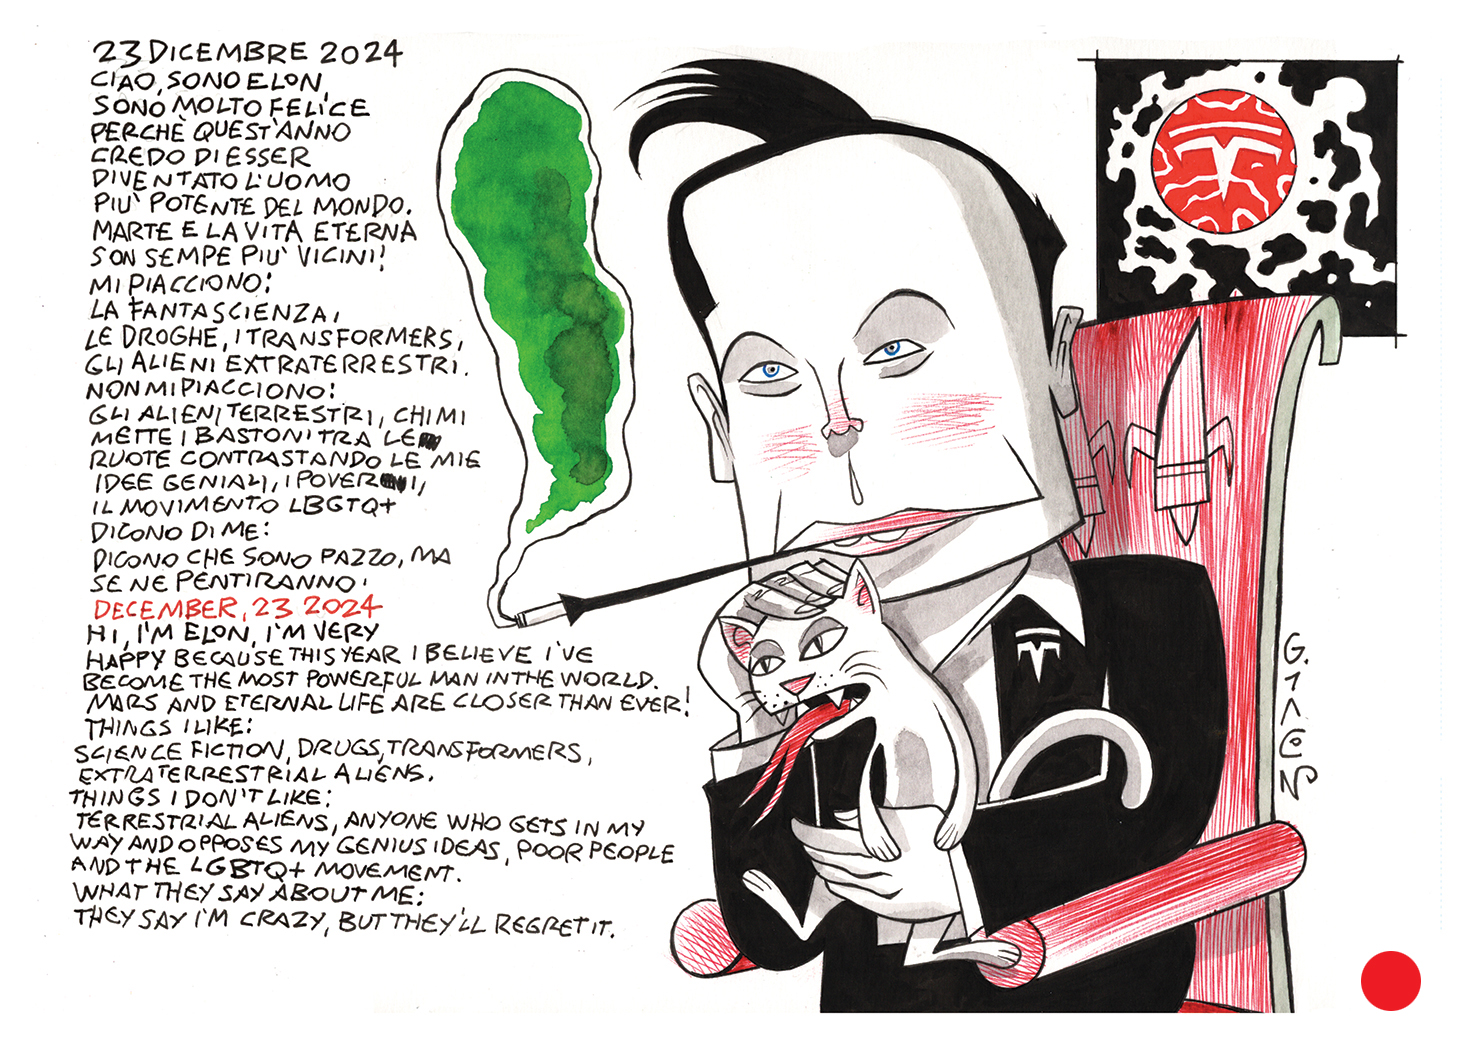 23 DICEMBRE 2024
CIAO, SONO ELON,
SONO MOLTO FELICE
PERCHÈ QUEST'ANNO
CREDO DI ESSER
DIVENTATO L'UOMO
PIU' POTENTE DEL MONDO.
MARTE E LA VITA ETERNA
SON SEMPE PIU' VICINI!
MI PIACCIONO:
LA FANTASCIENZA,
LE DROGHE, I TRANSFORMERS,
GLI ALIENI EXTRATERRESTRI.
NON MI PIACCIONO:
GLI ALIENI TERRESTRI, CHI MI
METTE I BASTONI TRA LE
RUOTE CONTRASTANDO LE MIE
IDEE GENIALI, I POVERI,
IL MOVIMENTO LBGTQ+
DICONO DI ME:
DICONO CHE SONO PAZZO, MA
SE NE PENTIRANNO.
DECEMBER, 23 2024
HI, I'M ELON, I'M VERY
HAPPY BECAUSE THIS YEAR I BELIEVE I'VE
BECOME THE MOST POWERFUL MAN IN THE WORLD.
MARS AND ETERNAL LIFE ARE CLOSER THAN EVER!
THINGS I LIKE:
SCIENCE FICTION, DRUGS, TRANSFORMERS,
EXTRATERRESTRIAL ALIENS.
THINGS I DON'T LIKE:
TERRESTRIAL ALIENS, ANYONE WHO GETS IN MY
WAY AND OPPOSES MY GENIUS IDEAS, POOR PEOPLE
AND THE LGBTQ+ MOVEMENT.
WHAT THEY SAY ABOUT ME:
THEY SAY I'M CRAZY, BUT THEY'LL REGRET IT.